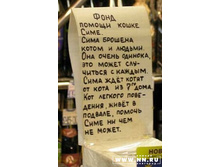 ФОНД
ПОМОЩИ КОШКЕ
СИМЕ.
СИМА БРОШЕНА
КОТОМ И ЛЮДЬМИ.
ОНА ОЧЕНЬ ОДИНОКА,
ЭТО МОЖЕТ СЛУ-
ЧИТЬСЯ С КАЖДЫМ.
СИМА ЖДЁТ КОТЯТ
ОТ КОТА ИЗ 7го ДОМА.
КОТ ЛЕГКОГО ПОВЕ-
ДЕНИЯ, ЖИВЁТ В
ПОДВАЛЕ, ПОМОЧЬ
СИМЕ НИ ЧЕМ
НЕ МОЖЕТ.
НОВ
WWW.NN.RU